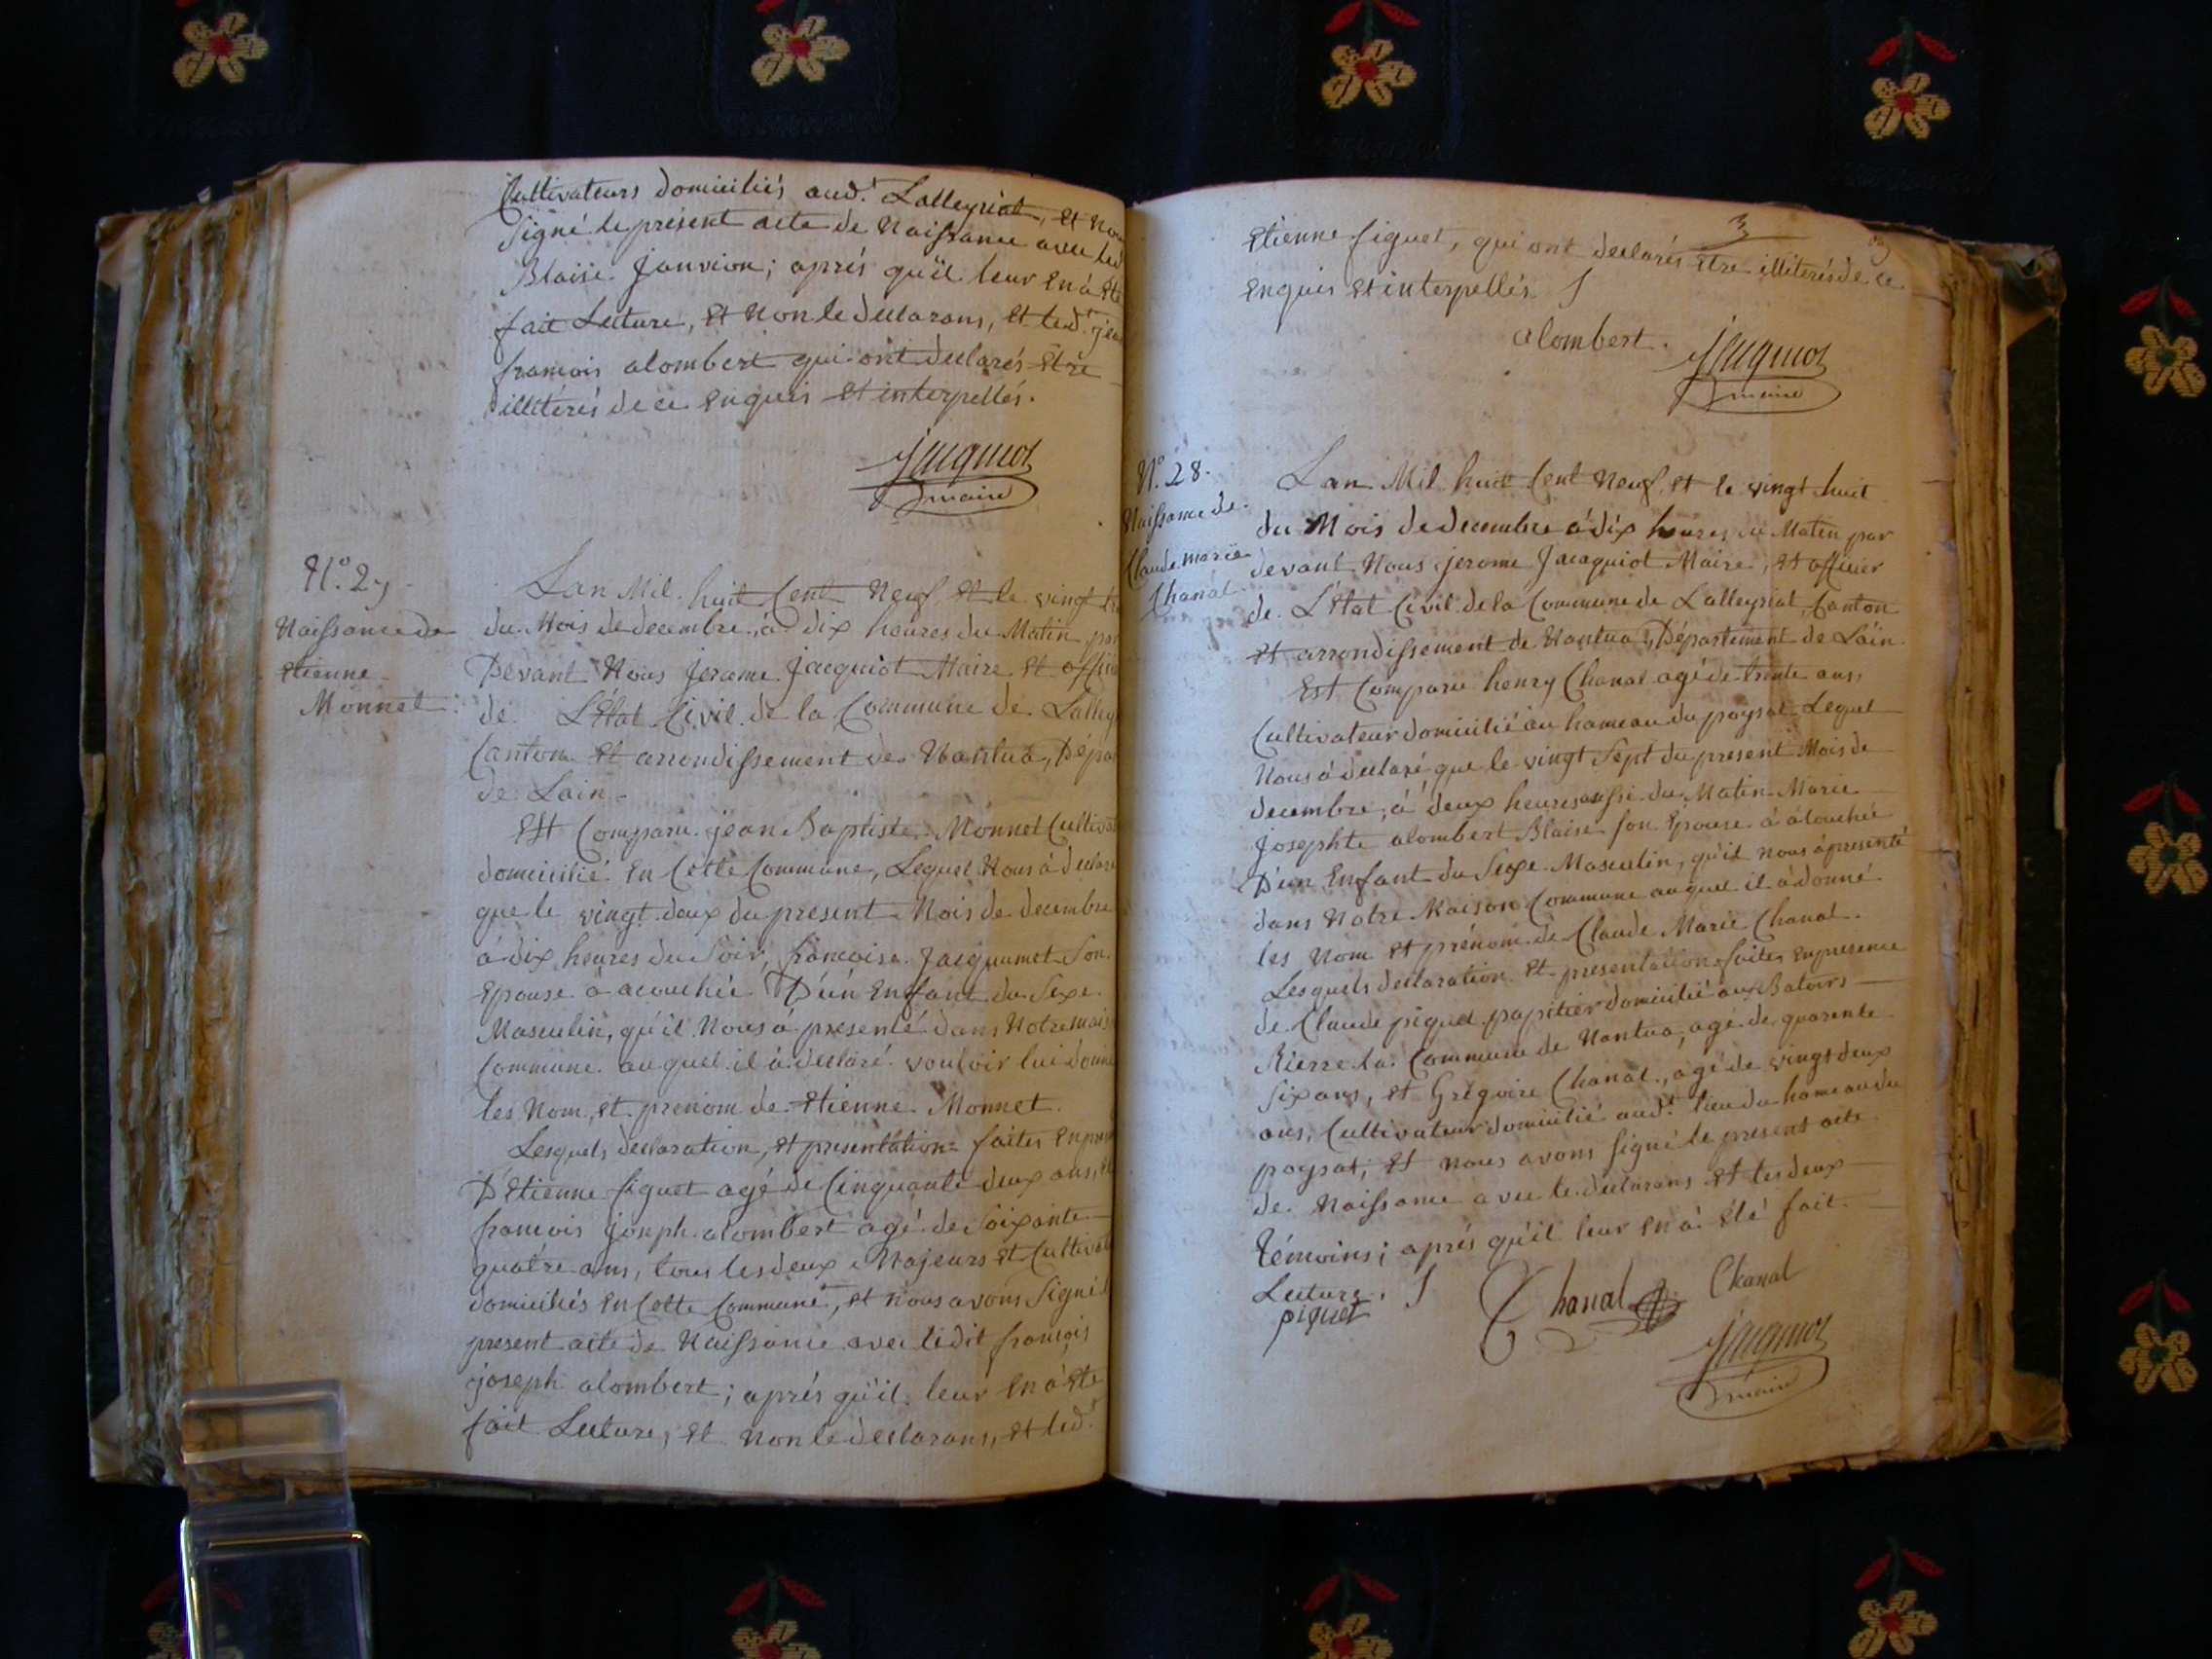 Cultivateurs domiciliés aud.t Lalleyriat, et nou
signé le présent acte de Naissance avec led
Blaise Janvion; aprés qu'il leur en à eté
fait Lecture, et Non le declarans, et led.t jean
francois alombert qui ont declarés etre
illitérés de ce enquis et interpellés.
Jacquiot
maire
N.o 27
Naissance de
etienne
Monnet
Lan Mil huit Cent Neuf et le vingt
du Mois de decembre, à dix heures du Matin par
Devant Nous Jerome Jacquiot Maire et offici
de L'Etat Civil de la Commune de Lalley
Canton et arrondissement de Nantua, Dépar
de Lain.
Est Comparu jean Baptiste Monnet Cultivat
domicilié en Cette Commune, Lequel Nous à declaré
que le vingt deux du present Mois de decembre
à dix heures du Soir, francoise Jacquumet Son
Epouse à acouchée D'un Enfant du Sexe
Masculin, qu'il Nous à presenté dans Notre mais
Commune auquel il à declaré vouloir lui donne
les Nom, et prenom de Etienne Monnet
Lesquels declaration, et presentation faites en pres
D'Etienne figuet agé de Cinquante deux ans, et
francois Joseph alombert agé de Soixante
quatre ans, tous les deux Majeurs et Cultivat
domiciliés en Cette Commune, et nous avons Signé l
present acte de Naissance avec ledit francois
joseph alombert; aprés qu'il leur en à eté
fait Lecture, et Non le declarans, et led.t
3
Etienne figuet, qui ont declarés etre illitérés de ce
enquis et interpellés
alombert.
Jacquiot
maire
N.o 28.
Naissance de
Claude marie
Chanal
Lan Mil huit Cent Neuf et le vingt huit
du Mois de decembre à dix heures du Matin par
devant Nous jerome Jacaquiot Maire, et officier
de L'Etat Civil de la Commune de Lalleyriat, Canton
et arrondissement de Nantua, Département de Lain.
Est Comparu henry Chanal agé de trente ans,
Cultivateur domicilié au hameau du poysat Lequel
Nous à declaré que le vingt Sept du present Mois de
decembre, à deux heures aussi du Matin Marie
Josephte alombert Blaise Son Epouse à acouchée
D'un Enfant du Sexe Masculin, qu'il nous à presenté
dans Notre Maison Commune auquel il à donné
les Nom et prénom de Claude Marie Chanal.
Lesquels declaration et presentation faites en presence
de Claude piquet papitier domicilié aux Batoirs
Rierre la Commune de Nantua, agé de quarente
Six ans, et Grégoire Chanal, agé de vingt deux
ans, Cultivateur domicilié aud.t lieu du hameau du
poysat, et nous avons signé le present acte
de Naissance avec le declarans et les deux
témoins; aprés qu'il leur en à eté fait
Lecture.
piquet Chanal Chanal
Jacquiot
maire